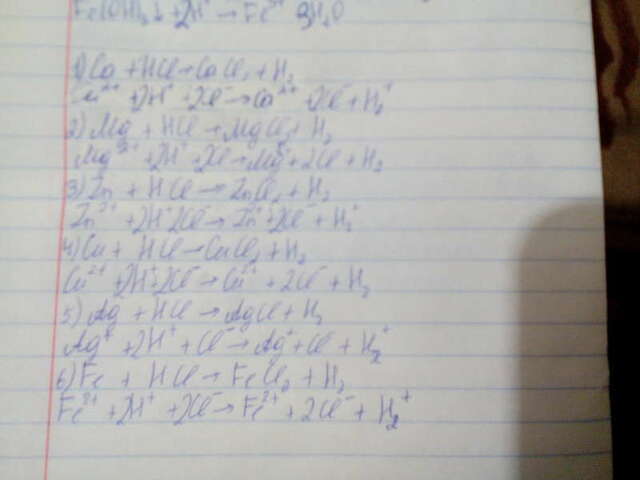 Fe(OH)₃↓ + 3H⁺ → Fe³⁺ 3H₂O
1) Ca + HCl → CaCl₂ + H₂
Ca²⁺ + 2H⁺ + 2Cl⁻ → Ca²⁺ + 2Cl⁻ + H₂⁺
2) Mg + HCl → MgCl₂ + H₂
Mg²⁺ + 2H⁺ + 2Cl⁻ → Mg²⁺ + 2Cl + H₂
3) Zn + HCl → ZnCl₂ + H₂
Zn²⁺ + 2H⁺ 2Cl⁻ → Zn²⁺ + 2Cl⁻ + H₂⁺
4) Cu + HCl → CuCl₂ + H₂
Cu²⁺ + 2H⁺ + 2Cl⁻ → Cu²⁺ + 2Cl⁻ + H₂
5) Ag + HCl → AgCl + H₂
Ag⁺ + 2H⁺ + Cl⁻ → Ag⁺ + Cl⁻ + H₂⁺
6) Fe + HCl → FeCl₂ + H₂
Fe²⁺ + 2H⁺ + 2Cl⁻ → Fe²⁺ + 2Cl⁻ + H₂⁺